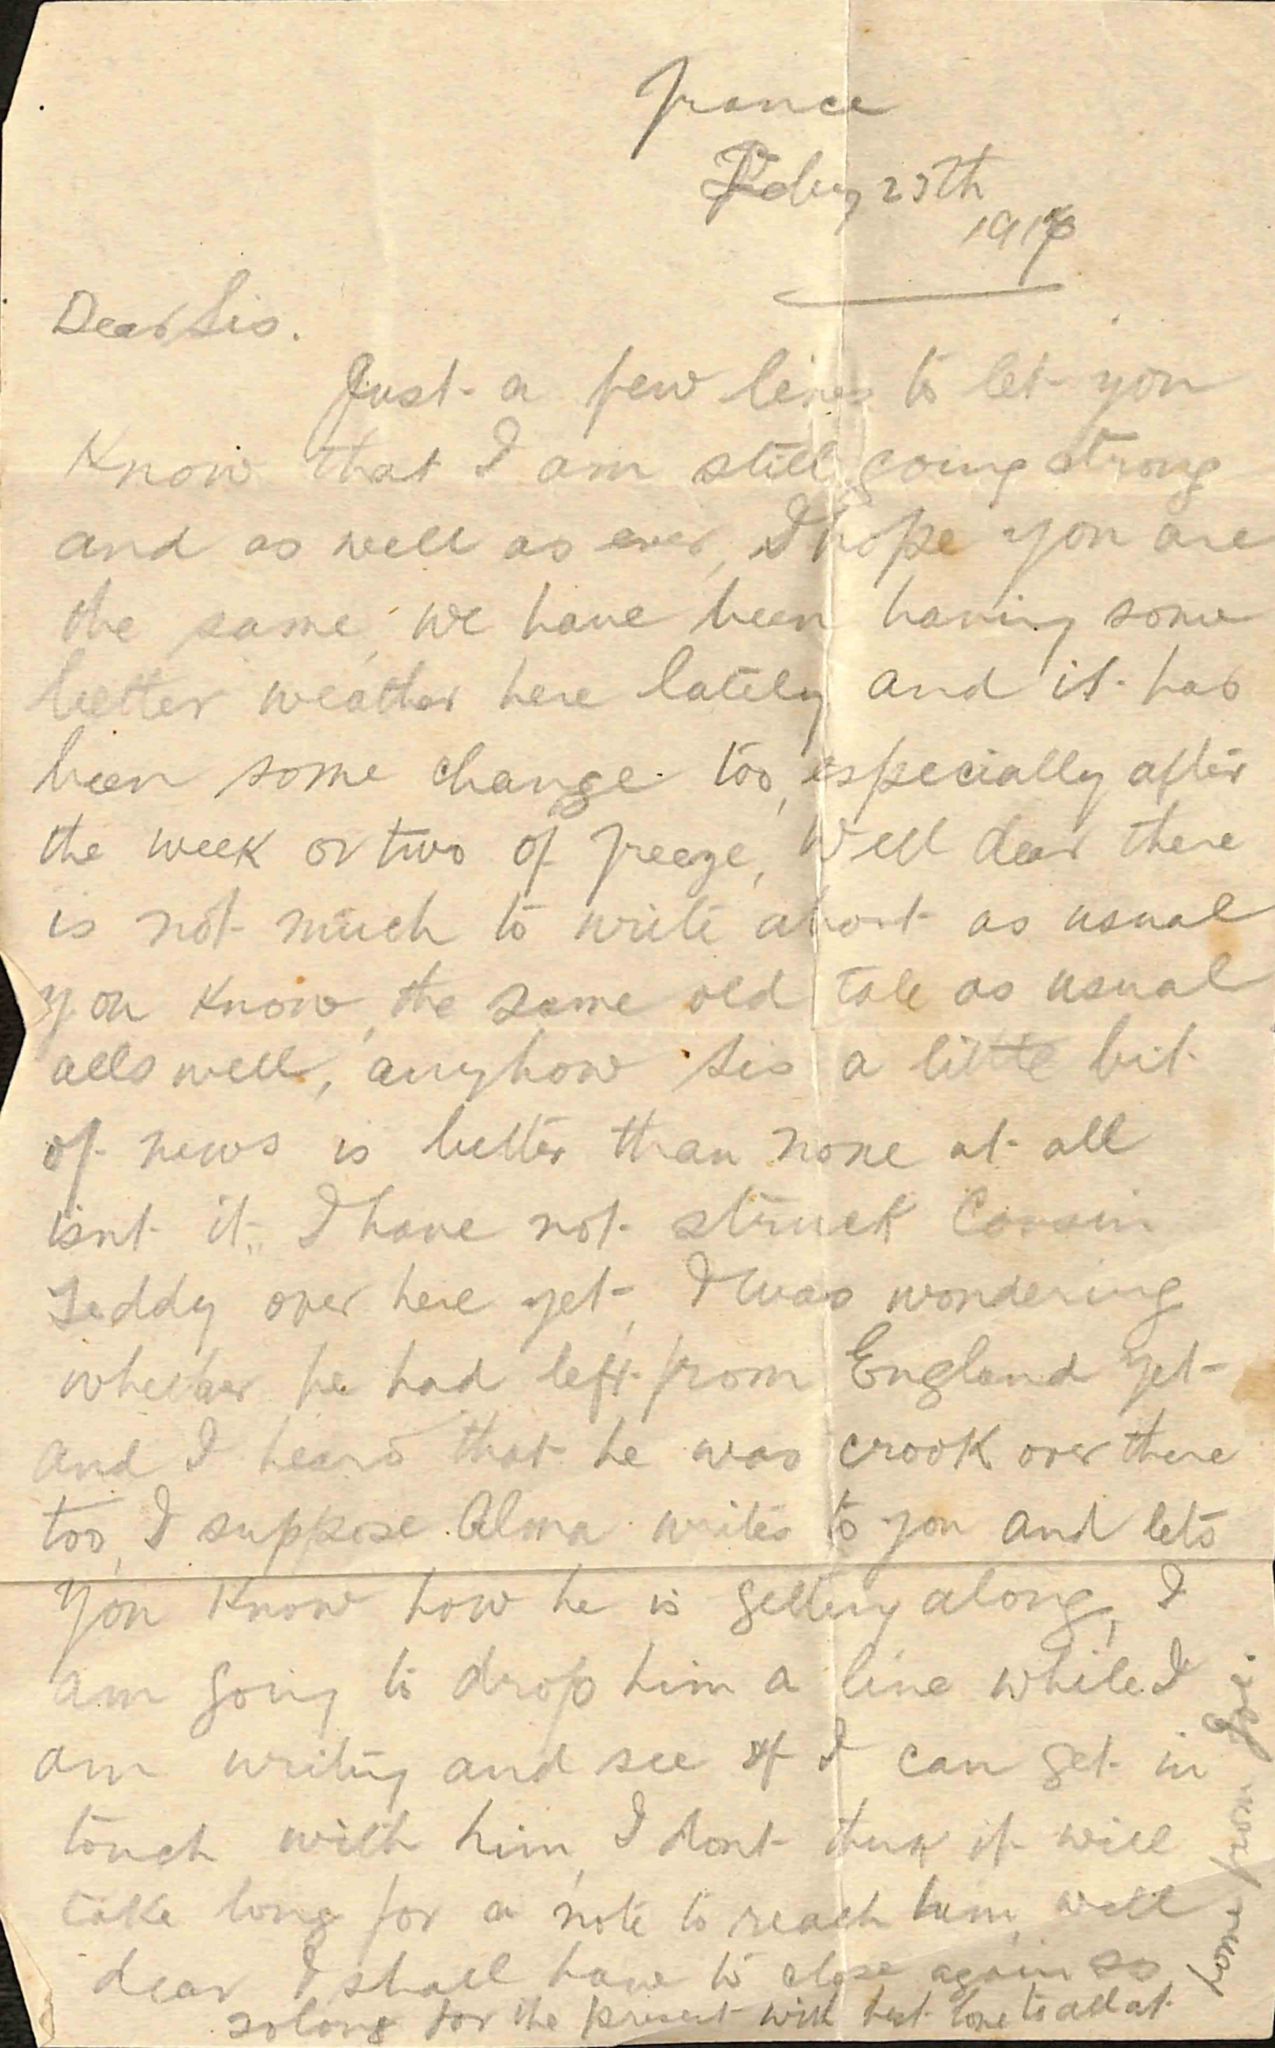 France
Feby 25th
1917
Dear Sis.
Just a few lines to let you
know that I am still going strong
and as well as ever, I hope you are
the same, we have been having some
better weather here lately and it has
been some change too, especially after
the week or two of freeze, Well dear there
is not much to write about as usual
you know, the same old tale as usual
alls well, anyhow Sis a little bit
of news is better than none at all
isnt it, I have not struck Cousin
Teddy over here yet, I was wondering
whether he had left from England yet
and I heard that he was crook over there
too, I suppose Alma writes to you and lets
you know how he is getting along, I
am going to drop him a line while I
am writing and see if I can get in
touch with him, I dont think it will
take long for a note to reach him, well
dear I shall have to close again so
solong for the present with best love to all at
home from Joe.